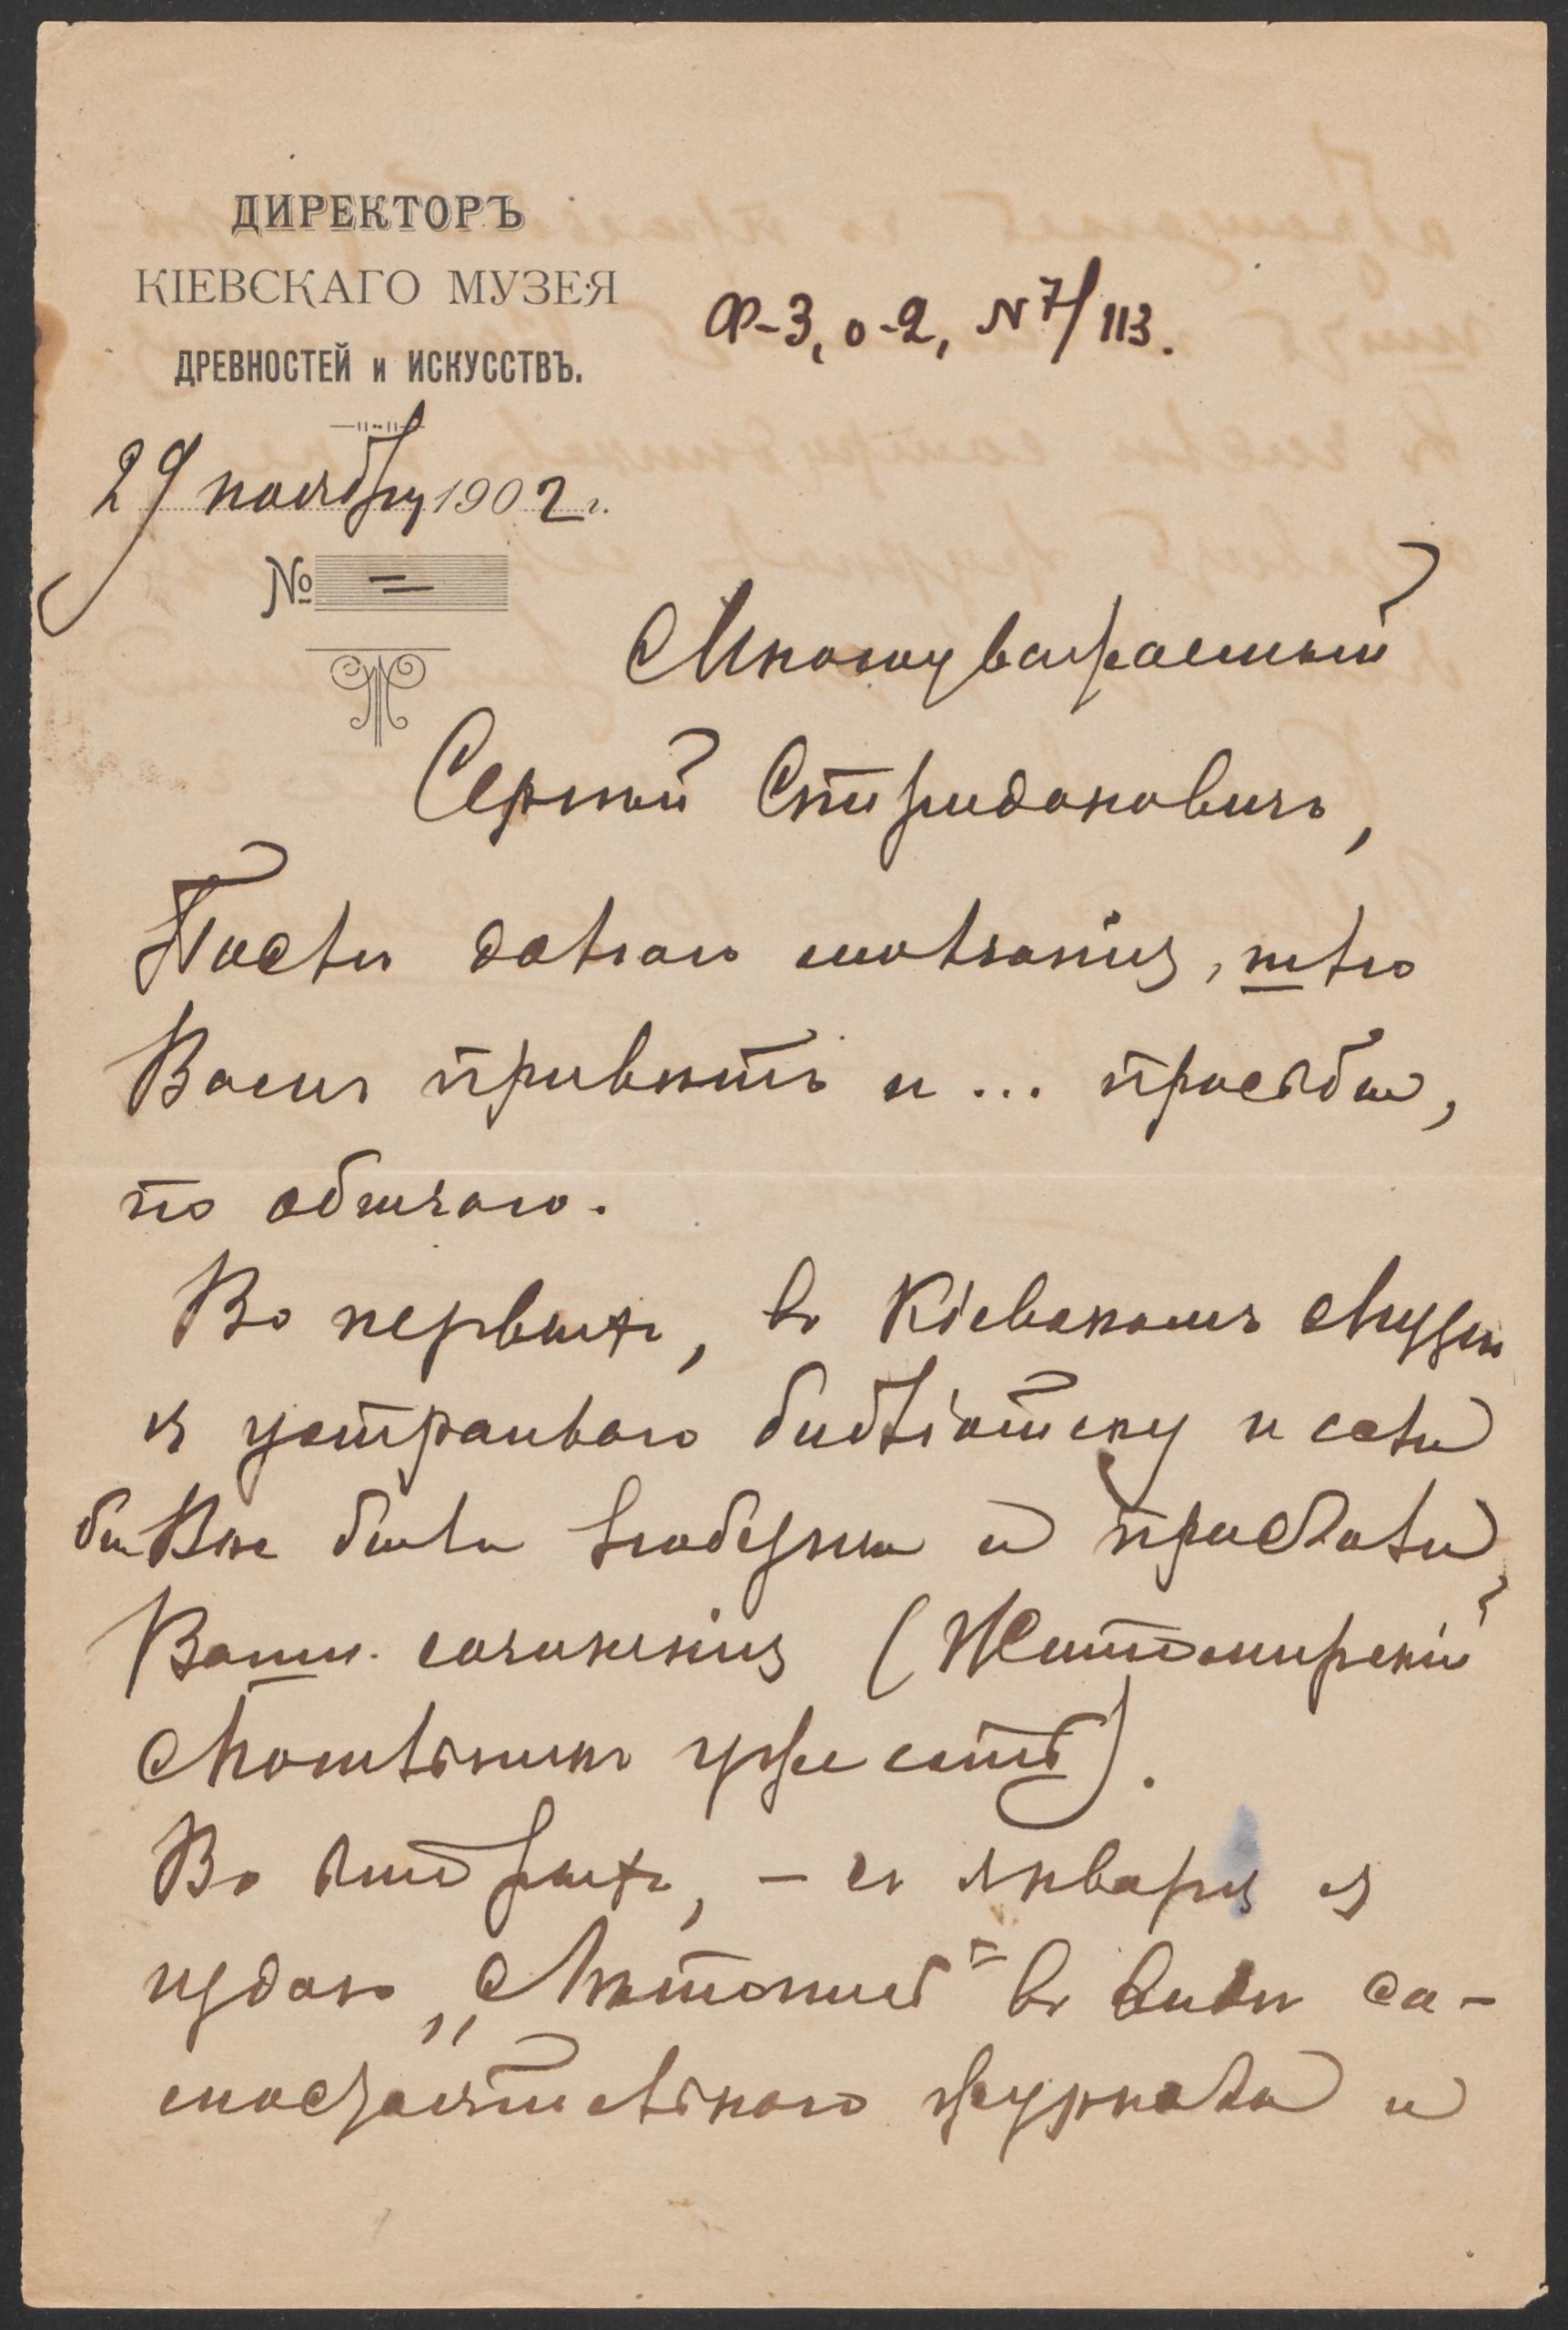 ДИРЕКТОРЪ
КІЕВСКАГО МУЗЕЯ
ДРЕВНОСТЕЙ и ИСКУССТВЪ.
Ф-3, о-2, N 7/113.
29 ноября 1902 г.
№ =
Многоуважаемый
Сергѣй Спиридоновичъ,
Послѣ долгаго молчанія, шлю
Вамъ привѣтъ и... просьбы,
по обычаю.
Во первыхъ, въ Кіевскомъ Музеѣ
я устраиваю библіотеку и если
бы Вы были любезны и прислали
Ваши сочиненія (Житомирскій
Могильникъ уже есть).
Во вторыхъ, – съ января я
издаю „Лѣтопись" въ видѣ са-
мостоятельнаго журнала и